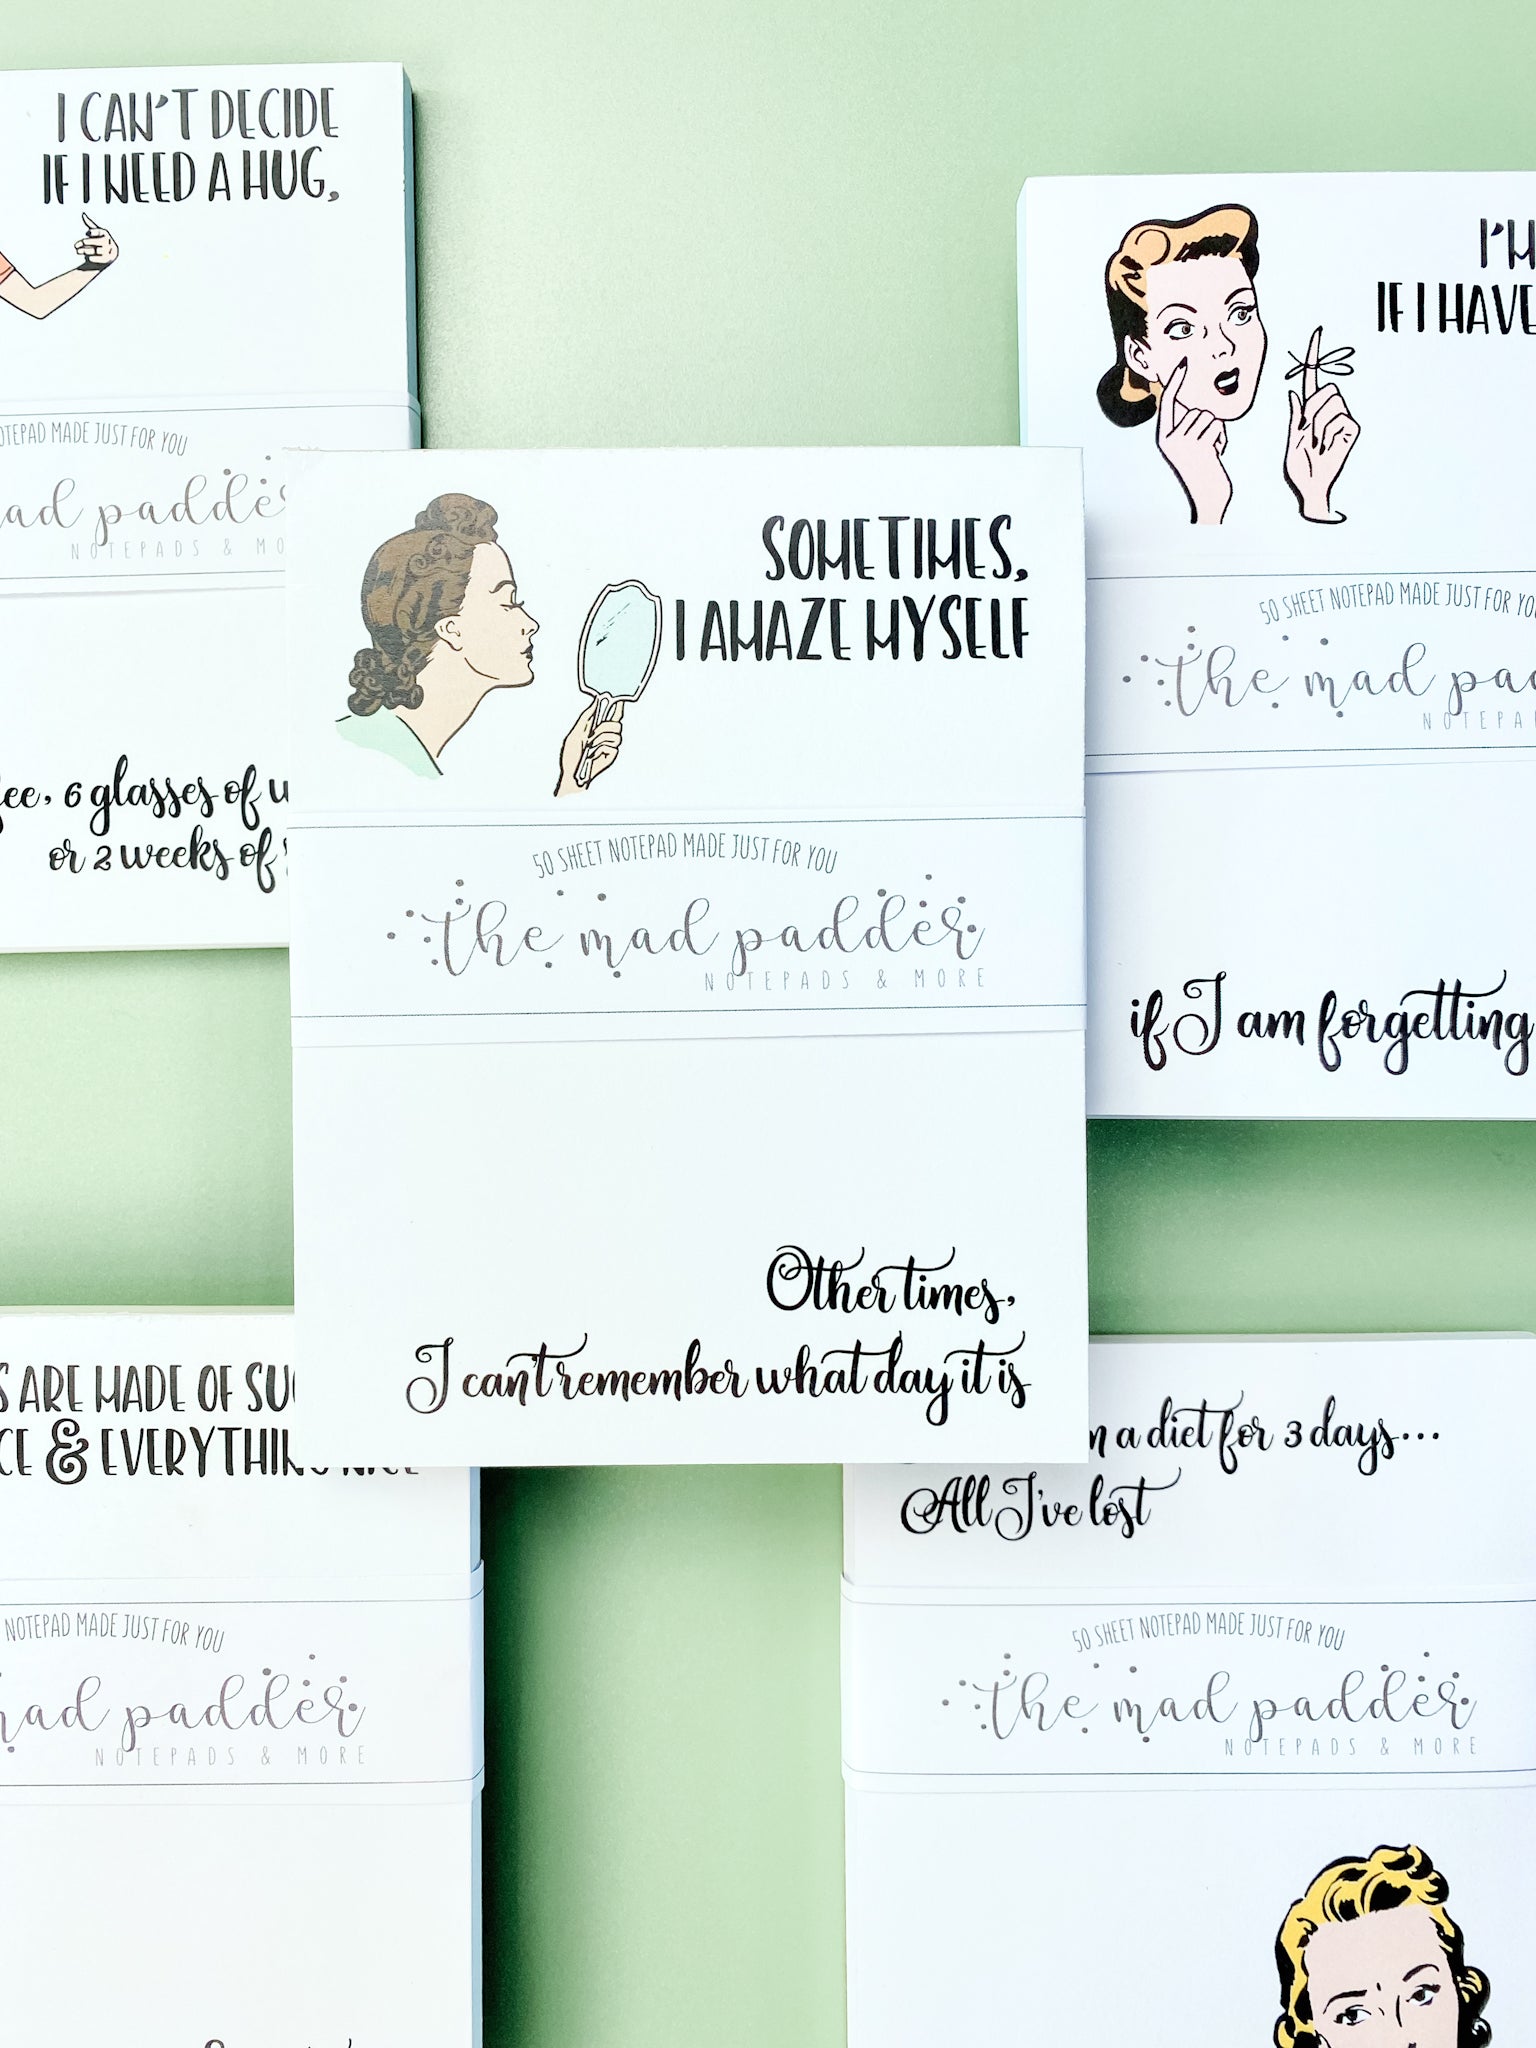 I CAN'T DECIDE
IF I NEED A HUG,
MADE JUST FOR YOU
padder
NOTEPADS &
6 glasses of
or 2 weeks of
I'M
IF I HAVE
50 SHEET NOTEPAD MADE JUST FOR YOU
the mad
if I am forgetting
SOMETIMES,
I AMAZE MYSELF
50 SHEET NOTEPAD MADE JUST FOR YOU
the mad padder
NOTEPADS & MORE
Other times,
I can't remember what day it is
ARE MADE OF
& EVERYTHING NICE
NOTEPAD MADE JUST FOR YOU
mad padder
NOTEPADS & MORE
a diet for 3 days...
All I've lost
50 SHEET NOTEPAD MADE JUST FOR YOU
the mad padder
NOTEPADS & MORE